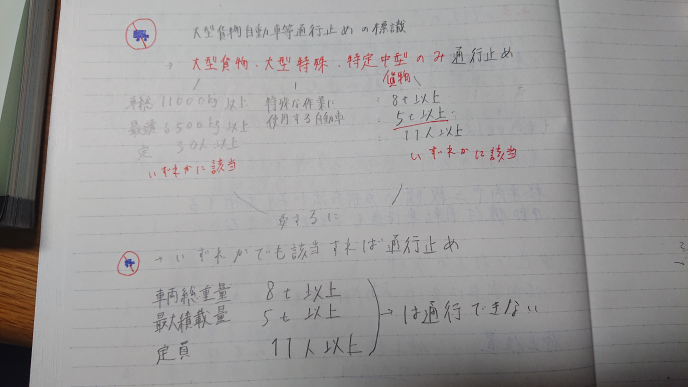 大型貨物自動車等通行止めの標識
・大型貨物・大型特殊・特定中型のみ通行止め
貨物
車総 11000kg以上 特殊な作業に : 8t以上
最積 6500kg以上 使用する自動車 : 5t以上
定 30人以上 : 11人以上
いずれかに該当 いずれかに該当
要するに
→いずれかでも該当すれば通行止め
車両総重量 8t以上
最大積載量 5t以上 →は通行できない
定員 11人以上